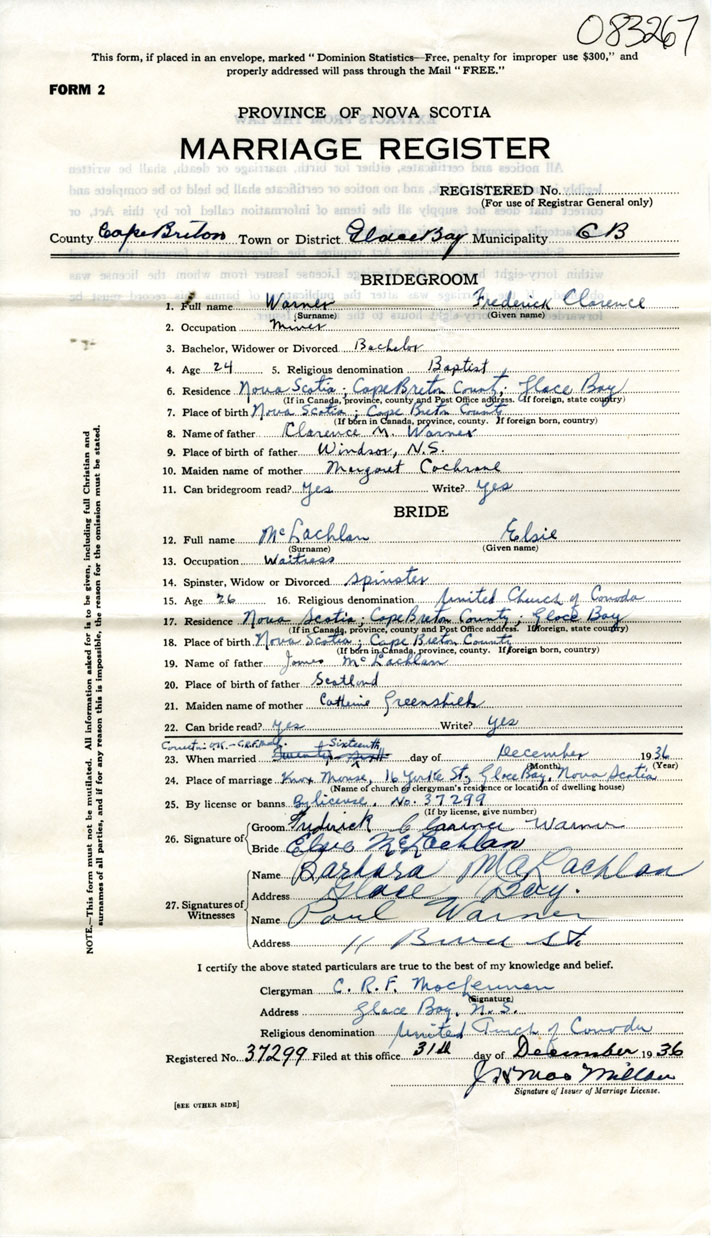 083267
This form, if placed in an envelope, marked "Dominion Statistics—Free, penalty for improper use $300," and
properly addressed will pass through the Mail "FREE."
FORM 2
PROVINCE OF NOVA SCOTIA
MARRIAGE REGISTER
REGISTERED No.
(For use of Registrar General only)
County Cape Breton Town or District Glace Bay Municipality C B
BRIDEGROOM
1. Full name Warner Frederick Clarence
(Surname) (Given name)
2. Occupation Miner
3. Bachelor, Widower or Divorced Bachelor
4. Age 24 5. Religious denomination Baptist
6. Residence Nova Scotia; Cape Breton County; Glace Bay
(If in Canada, province, county and Post Office address. If foreign, state country)
7. Place of birth Nova Scotia; Cape Breton County
(If born in Canada, province, county. If foreign born, country)
8. Name of father Clarence M. Warner
9. Place of birth of father Windsor, N.S.
10. Maiden name of mother Margaret Cochrane
11. Can bridegroom read? Yes Write? Yes
BRIDE
12. Full name McLachlan Elsie
(Surname) (Given name)
13. Occupation Waitress
14. Spinster, Widow or Divorced Spinster
15. Age 26 16. Religious denomination United Church of Canada
17. Residence Nova Scotia; Cape Breton County; Glace Bay
(If in Canada, province, county and Post Office address. If foreign, state country)
18. Place of birth Nova Scotia; Cape Breton County
(If born in Canada, province, county. If foreign born, country)
19. Name of father James McLachlan
20. Place of birth of father Scotland
21. Maiden name of mother Catherine Greenshields
22. Can bride read? Yes Write? Yes
Sixteenth
23. When married day of December 1936
(Month) (Year)
24. Place of marriage Knox Manse, 16 Yorke St, Glace Bay, Nova Scotia
(Name of church or clergyman's residence or location of dwelling house)
25. By license or banns By license, No. 37299
(If by license, give number)
26. Signature of Groom Frederick Clarence Warner
Bride Elsie McLachlan
27. Signatures of Witnesses
Name Barbara McLachlan
Address Glace Bay.
Name Paul Warner
Address 11 Bruce St.
I certify the above stated particulars are true to the best of my knowledge and belief.
Clergyman C. R. F. MacLennan
(Signature)
Address Glace Bay, N.S.
Religious denomination United Church of Canada
Registered No. 37299 Filed at this office 31st day of December 1936
MacMillan
Signature of Issuer of Marriage License.
[SEE OTHER SIDE]
NOTE.—This form must not be mutilated. All information asked for is to be given, including full Christian and
surnames of all parties, and if for any reason this is impossible, the reason for the omission must be stated.